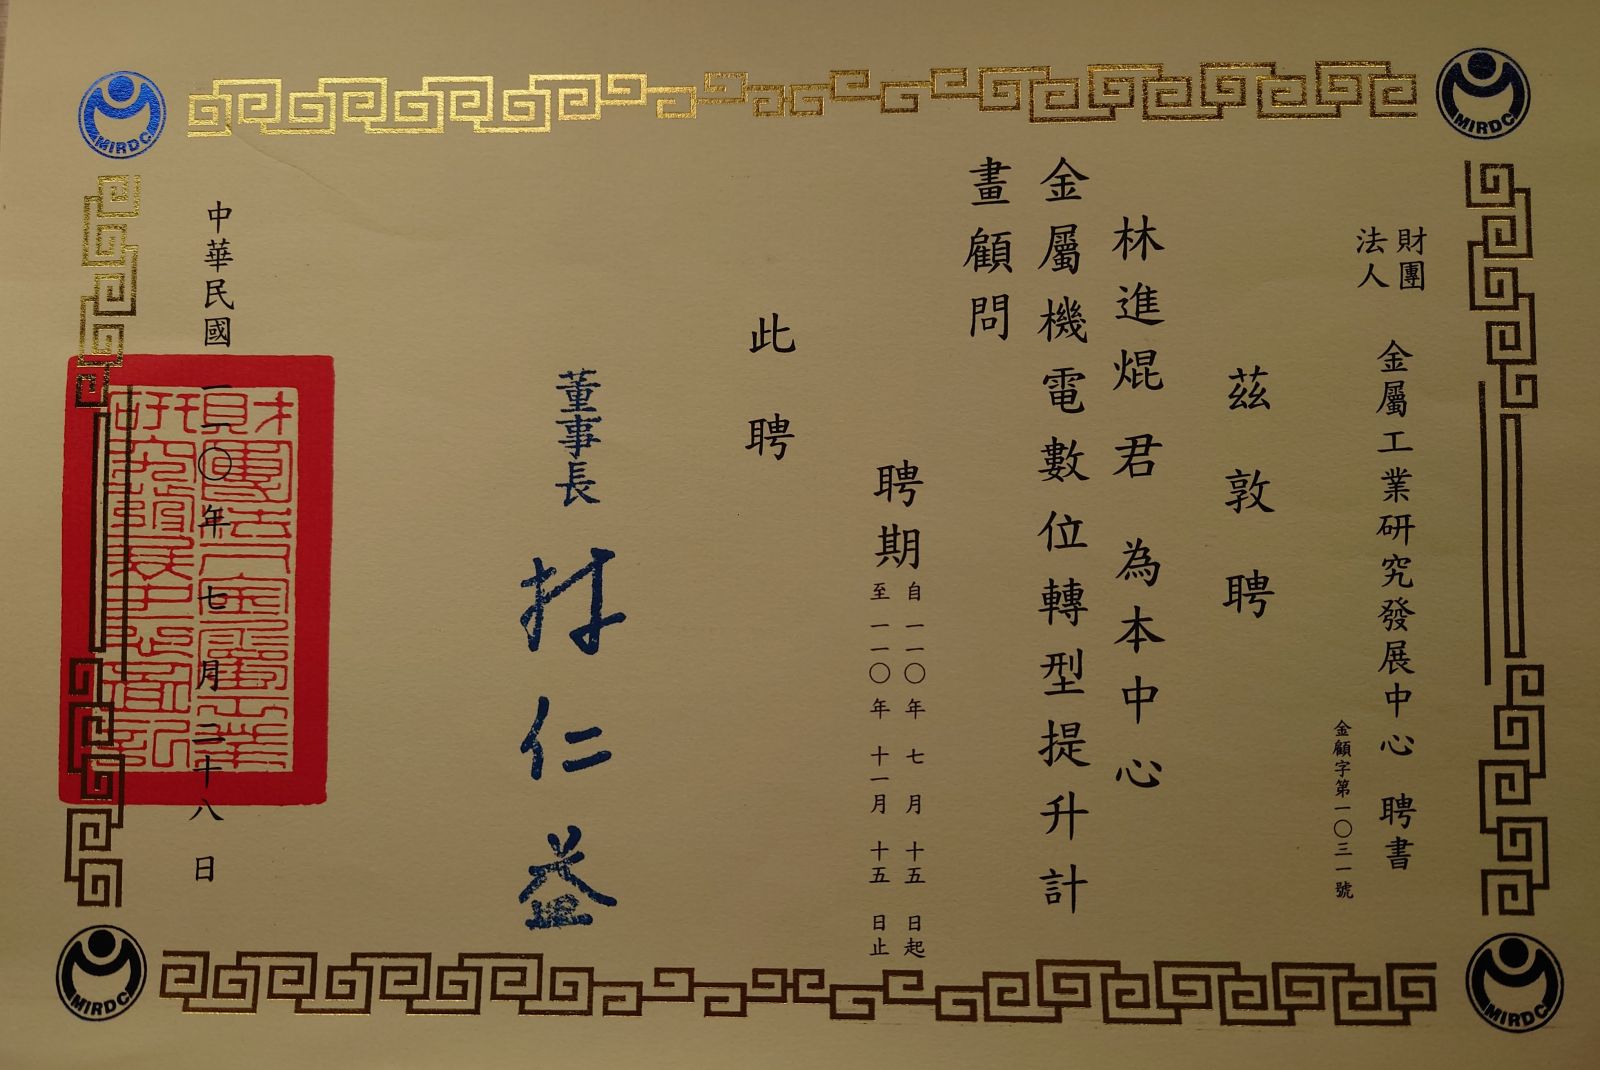 財團
法人
金屬工業研究發展中心 聘書
金顧字第一〇三一號
茲敦聘
林進焜君 為本中心
金屬機電數位轉型提升計
畫顧問
聘期
自一一〇年 七月 十五日起
至一一〇年 十一月 十五日止
此聘
董事長 林仁益
中華民國一一〇年 七月二十八日
財團法人金屬工業
研究發展中心
MIRDC
MIRDC
MIRDC
MIRDC